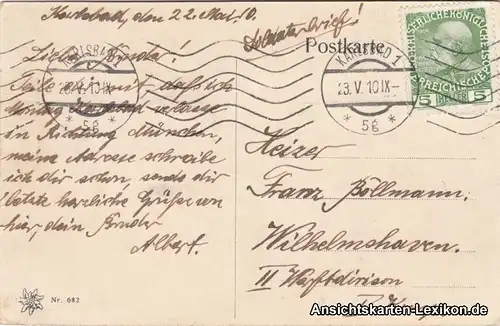 Karlsbad, den 22. Mai 10.
Soldatenbrief!
Postkarte
Lieber Bruder!
Teile dir mit, daß ich
Montag Abend verlasse
in Richtung München,
meine Adresse schreibe
ich dir schon, sende dir
letzte herzliche Grüße von
hier, dein Bruder
Albert.
KARLSBAD 1
23. V. 10 IX-
* 5g *
KAISERLICHE KÖNIGLICHE
ÖSTERREICHISCHE
5 HELLER 5
Heizer
Franz Böllmann.
Wilhelmshaven.
II Werftdivision
Nr. 682
Ansichtskarten-Lexikon.de